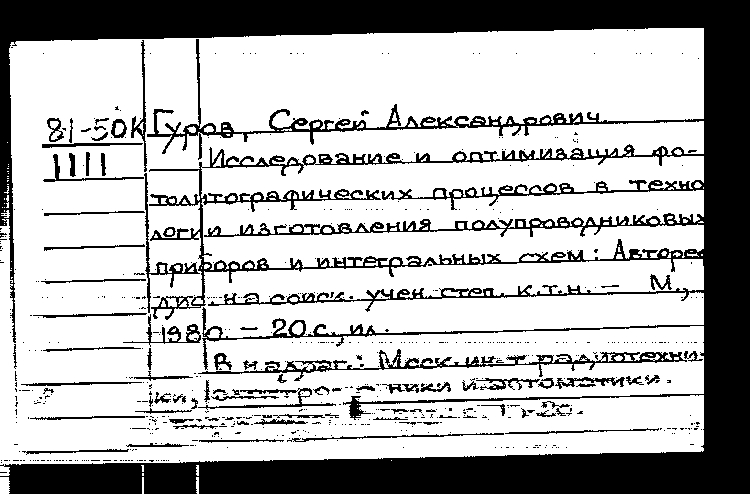 81-50К Гуров, Сергей Александрович.
1111 Исследование и оптимизация фо-
толитографических процессов в техно
логии изготовления полупроводниковых
приборов и интегральных схем: Авторе
дис. на соиск. учен. степ. к.т.н. — М.,
1980. — 20 с., ил.
В надзаг.: Моск. ин-т радиотехни-
ки, электро ники и автоматики.